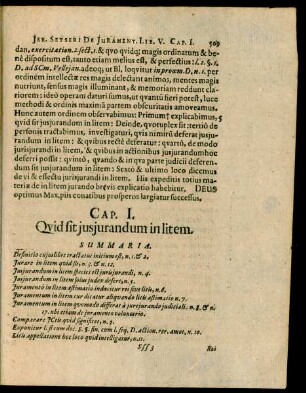 JER. SETSERI DE JURAMENT. LIB. V. CAP. I. 509
dan, exercitation. 2. sect. 1. & qvo qvidq; magis ordinatum & be-
nè dispositum est, tanto etiam melius est, & perfectius: l. 2. §. 1.
D. ad SCm. Vellejan. adeoq; ut Bl. loqvitur in proœm. D. n. 1. per
ordinem intellectæ res magis delectant animos, mentes magis
nutriunt, sensus magis illuminant, & memoriam reddunt cla-
riorem: ideò operam daturi sumus, ut qvantū fieri potest, luce
methodi & ordinis maximā partem obscuritatis amoveamus.
Hunc autem ordinem observabimus: Primum explicabimus,
qvid sit jusjurandum in litem: Deinde, qvotuplex sit: tertiò de
personis tractabimus, investigaturi, qvis nimirū deferat jusju-
randum in litem, & qvibus rectè deferatur: qvartò, de modo
jurisjurandi in litem, & qvibus in actionibus jusjurandum hoc
deferri possit: qvintò, qvando & in qva parte judicii deferen-
dum sit jusjurandum in litem: Sextò & ultimo loco dicemus
de vi & effectu jurisjurandi in litem. His expeditis totius ma-
teriæ de in litem jurando brevis explicatio habebitur. DEUS
optimus Max. piis conatibus prosperos largiatur successus.
CAP. I.
Qvid sit jusjurandum in litem.
SUMMARIA.
Definitio cujuslibet tractatus initium est, n. 1. & 2.
Jurare in litem qvid sit, n. 3. & n. 12.
Jusjurandum in litem species est jurisjurandi, n. 4.
Jusjurandum in litem solus judex defert, n. 5.
Juramento in litem æstimatio inducitur rei sive litis, n. 6.
Juramentum in litem cur dicatur aliqvando litis æstimatio n. 7.
Juramentum in litem qvomodo differat à jurejurando judiciali. n. 8. & n.
17. ubi etiam de juramento voluntario.
Comparare JCtis qvid significet, n. 9.
Exponitur l. est cum dic. §. fin. cum l. seq. D. action. rer. amot. n. 10.
Litis appellatione hoc loco qvid intelligatur, n. 11.
Sss 3 Rei